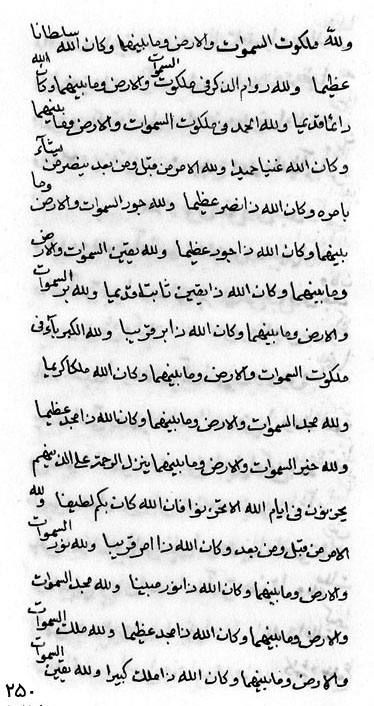 ولله ملكوت السموات والارض وما بينهما وكان الله سلطانا
عظيما ولله دوام الذكر فى ملكوت السموات والارض وما بينهما وكان الله
دائما قديما ولله المجد فى ملكوت السموات والارض وما بينهما
وكان الله غنيا حميدا ولله الامر من قبل ومن بعد ينصر من يشآء
بامره وكان الله ذا نصر عظيما ولله جود السموات والارض وما
بينهما وكان الله ذا جود عظيما ولله يقين السموات والارض
وما بينهما وكان الله ذا يقين ثابتا قديما ولله بر السموات
والارض وما بينهما وكان الله ذا بر قريبا ولله الكبريآء فى
ملكوت السموات والارض وما بينهما وكان الله ملكا كريما
ولله مجد السموات والارض وما بينهما وكان الله ذا مجد عظيما
ولله خير السموات والارض وما بينهما ينزل الرحمة على الذينهم
يحزنون فى ايام الله الا تحزنوا فان الله كان بكم لطيفا ولله
الامر من قبل ومن بعد وكان الله ذا امر قريبا ولله نور السموات
والارض وما بينهما وكان الله ذا نور مبينا ولله مجد السموات
والارض وما بينهما وكان الله ذا مجد عظيما ولله ملك السموات
والارض وما بينهما وكان الله ذا ملك كبيرا ولله يقين السموات
٢٥٠